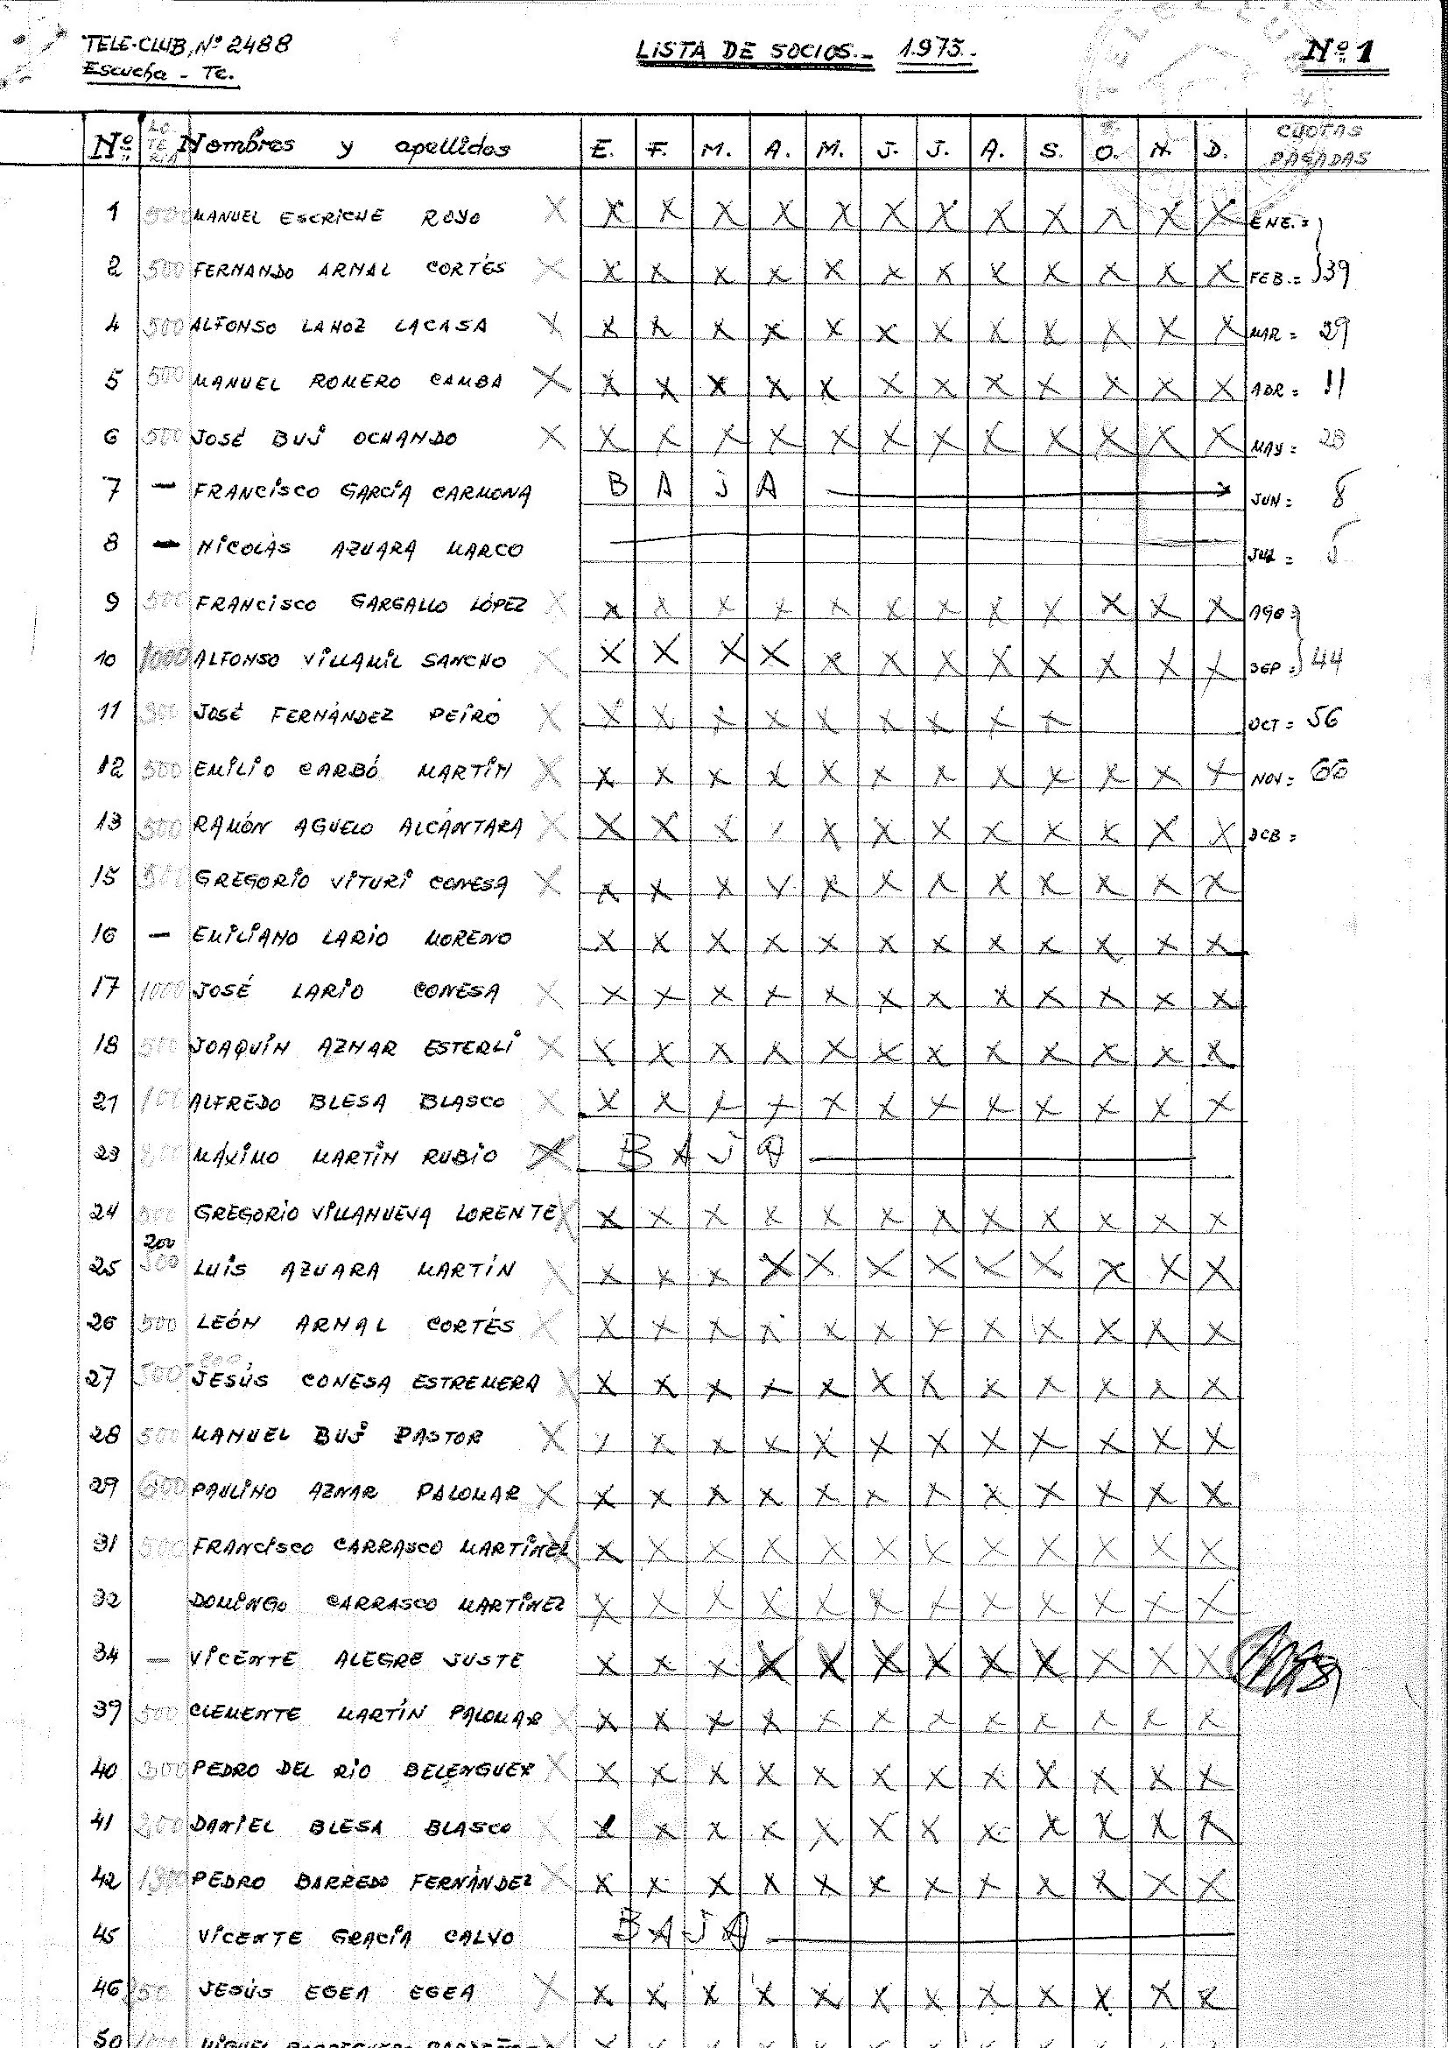 TELE-CLUB, Nº 2488 LISTA DE SOCIOS.- 1.975.- Nº 1
Escucha - Te.
Nº LOTERIA Nombres y apellidos E. F. M. A. M. J. J. A. S. O. N. D. CUOTAS PAGADAS
1 500 MANUEL ESCRICHE ROYO X X X X X X X X X X X X X ENE. =
2 500 FERNANDO ARNAL CORTÉS X X X X X X X X X X X X X FEB. = 39
4 500 ALFONSO LAHOZ LACASA X X X X X X X X X X X X X MAR = 29
5 500 MANUEL ROMERO CAMBA X X X X X X X X X X X X X ABR = 11
6 500 JOSÉ BUJ OCHANDO X X X X X X X X X X X X X MAY =
7 - FRANCISCO GARCÍA CARMONA B A J A JUN = 8
8 - NICOLÁS AZUARA MARCO JUL = 5
9 500 FRANCISCO GARGALLO LÓPEZ X X X X X X X X X X X X X AGO =
10 1000 ALFONSO VILLAMIL SANCHO X X X X X X X X X X X X X SEP = 44
11 JOSÉ FERNÁNDEZ PEIRÓ X X X X X X X X X X OCT = 56
12 500 EMILIO CARBÓ MARTÍN X X X X X X X X X X X X X NOV = 66
13 500 RAMÓN AGUELO ALCÁNTARA X X X X X X X X X X X X X DCB =
15 500 GREGORIO VITURI CONESA X X X X X X X X X X X X X
16 - EMILIANO LARIO MORENO X X X X X X X X X X X X
17 1000 JOSÉ LARIO CONESA X X X X X X X X X X X X X
18 500 JOAQUÍN AZNAR ESTERLI X X X X X X X X X X X X X
21 ALFREDO BLESA BLASCO X X X X X X X X X X X X X
23 MÁXIMO MARTÍN RUBIO X B A J A
24 500 GREGORIO VILLANUEVA LORENTE X X X X X X X X X X X X X
200
25 500 LUIS AZUARA MARTÍN X X X X X X X X X X X X X
26 500 LEÓN ARNAL CORTÉS X X X X X X X X X X X X X
27 500 JESÚS CONESA ESTREMERA X X X X X X X X X X X X X
28 500 MANUEL BUJ PASTOR X X X X X X X X X X X X X
29 600 PAULINO AZNAR PALOMAR X X X X X X X X X X X X X
31 500 FRANCISCO CARRASCO MARTINEZ X X X X X X X X X X X X X
32 DOMINGO CARRASCO MARTINEZ X X X X X X X X X X X X
34 - VICENTE ALEGRE JUSTE X X X X X X X X X X X X
39 500 CLEMENTE MARTÍN PALOMAR X X X X X X X X X X X X X
40 300 PEDRO DEL RIO BELENGUER X X X X X X X X X X X X X
41 200 DANIEL BLESA BLASCO X X X X X X X X X X X X X
42 PEDRO BARREDO FERNÁNDEZ X X X X X X X X X X X X X
45 VICENTE GRACIA CALVO B A J A
46 JESÚS EGEA EGEA X X X X X X X X X X X X X
50 MIGUEL